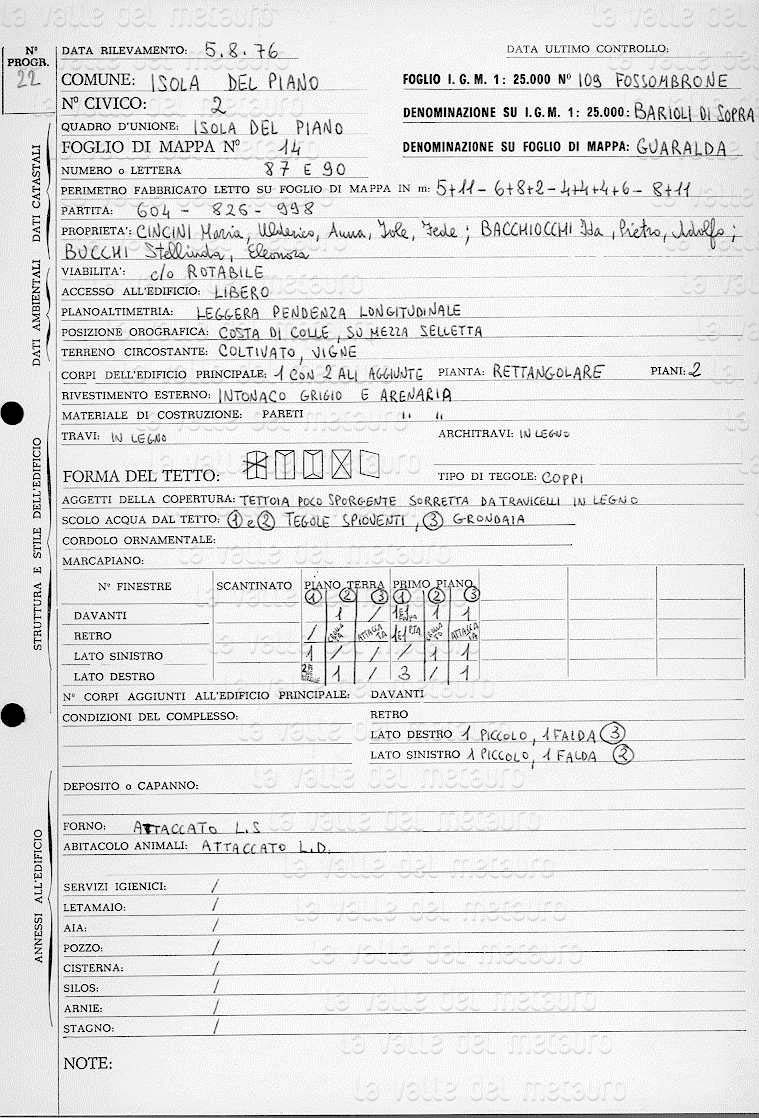 Nº PROGR. 22
DATA RILEVAMENTO: 5.8.76 DATA ULTIMO CONTROLLO:
COMUNE: ISOLA DEL PIANO FOGLIO I. G. M. 1: 25.000 Nº 109 FOSSOMBRONE
Nº CIVICO: 2 DENOMINAZIONE SU I. G. M. 1: 25.000: BARIOLI DI SOPRA
QUADRO D'UNIONE: ISOLA DEL PIANO
FOGLIO DI MAPPA Nº 14 DENOMINAZIONE SU FOGLIO DI MAPPA: GUARALDA
NUMERO o LETTERA 87 E 90
PERIMETRO FABBRICATO LETTO SU FOGLIO DI MAPPA IN m: 5+11-6+8+2-4+4+4+6-8+11
PARTITA: 604 - 826 - 998
PROPRIETA': CINCINI Maria, Ulderico, Anna, Iole, Fede; BACCHIOCCHI Ida, Pietro, Adolfo;
BUCCHI Stellinda, Eleonora
VIABILITA': c/o ROTABILE
ACCESSO ALL'EDIFICIO: LIBERO
PLANOALTIMETRIA: LEGGERA PENDENZA LONGITUDINALE
POSIZIONE OROGRAFICA: COSTA DI COLLE, SU MEZZA SELLETTA
TERRENO CIRCOSTANTE: COLTIVATO, VIGNE
CORPI DELL'EDIFICIO PRINCIPALE: 1 CON 2 ALI AGGIUNTE PIANTA: RETTANGOLARE PIANI: 2
RIVESTIMENTO ESTERNO: INTONACO GRIGIO E ARENARIA
MATERIALE DI COSTRUZIONE: PARETI " "
TRAVI: IN LEGNO ARCHITRAVI: IN LEGNO
FORMA DEL TETTO: TIPO DI TEGOLE: COPPI
AGGETTI DELLA COPERTURA: TETTOIA POCO SPORGENTE SORRETTA DA TRAVICELLI IN LEGNO
SCOLO ACQUA DAL TETTO: 1 e 2 TEGOLE SPIOVENTI, 3 GRONDAIA
CORDOLO ORNAMENTALE:
MARCAPIANO:
Nº FINESTRE SCANTINATO PIANO TERRA PRIMO PIANO
1 2 3 1 2 3
DAVANTI 1 / 1 1
RETRO / ATTACCATA 1 E 1 ATTACCATA
LATO SINISTRO 1 / / / 1 /
LATO DESTRO 1 / 3 / 1
Nº CORPI AGGIUNTI ALL'EDIFICIO PRINCIPALE: DAVANTI
CONDIZIONI DEL COMPLESSO: RETRO
LATO DESTRO 1 PICCOLO, 1 FALDA 3
LATO SINISTRO 1 PICCOLO, 1 FALDA 2
DEPOSITO o CAPANNO:
FORNO: ATTACCATO L.S
ABITACOLO ANIMALI: ATTACCATO L.D.
SERVIZI IGIENICI: /
LETAMAIO: /
AIA: /
POZZO: /
CISTERNA: /
SILOS: /
ARNIE: /
STAGNO: /
NOTE:
DATI CATASTALI
DATI AMBIENTALI
STRUTTURA E STILE DELL'EDIFICIO
ANNESSI ALL'EDIFICIO
la valle del metauro